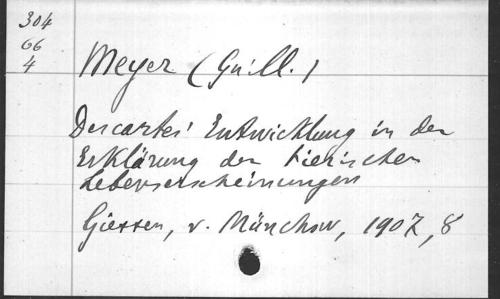 304
66
4
Meyer (Guill.)
Descartes' Entwicklung in der
Erklärung der tierischen
Lebenserscheinungen
Giessen, v. Münchow, 1907, 8